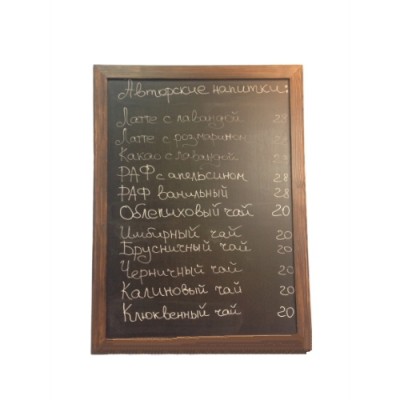 Авторские напитки:
Латте с лавандой 28
Латте с розмарином 28
Какао с лавандой 28
РАФ с апельсином 28
РАФ ванильный 28
Облепиховый чай 20
Имбирный чай 20
Брусничный чай
Черничный чай 20
Калиновый чай 20
Клюквенный чай 20